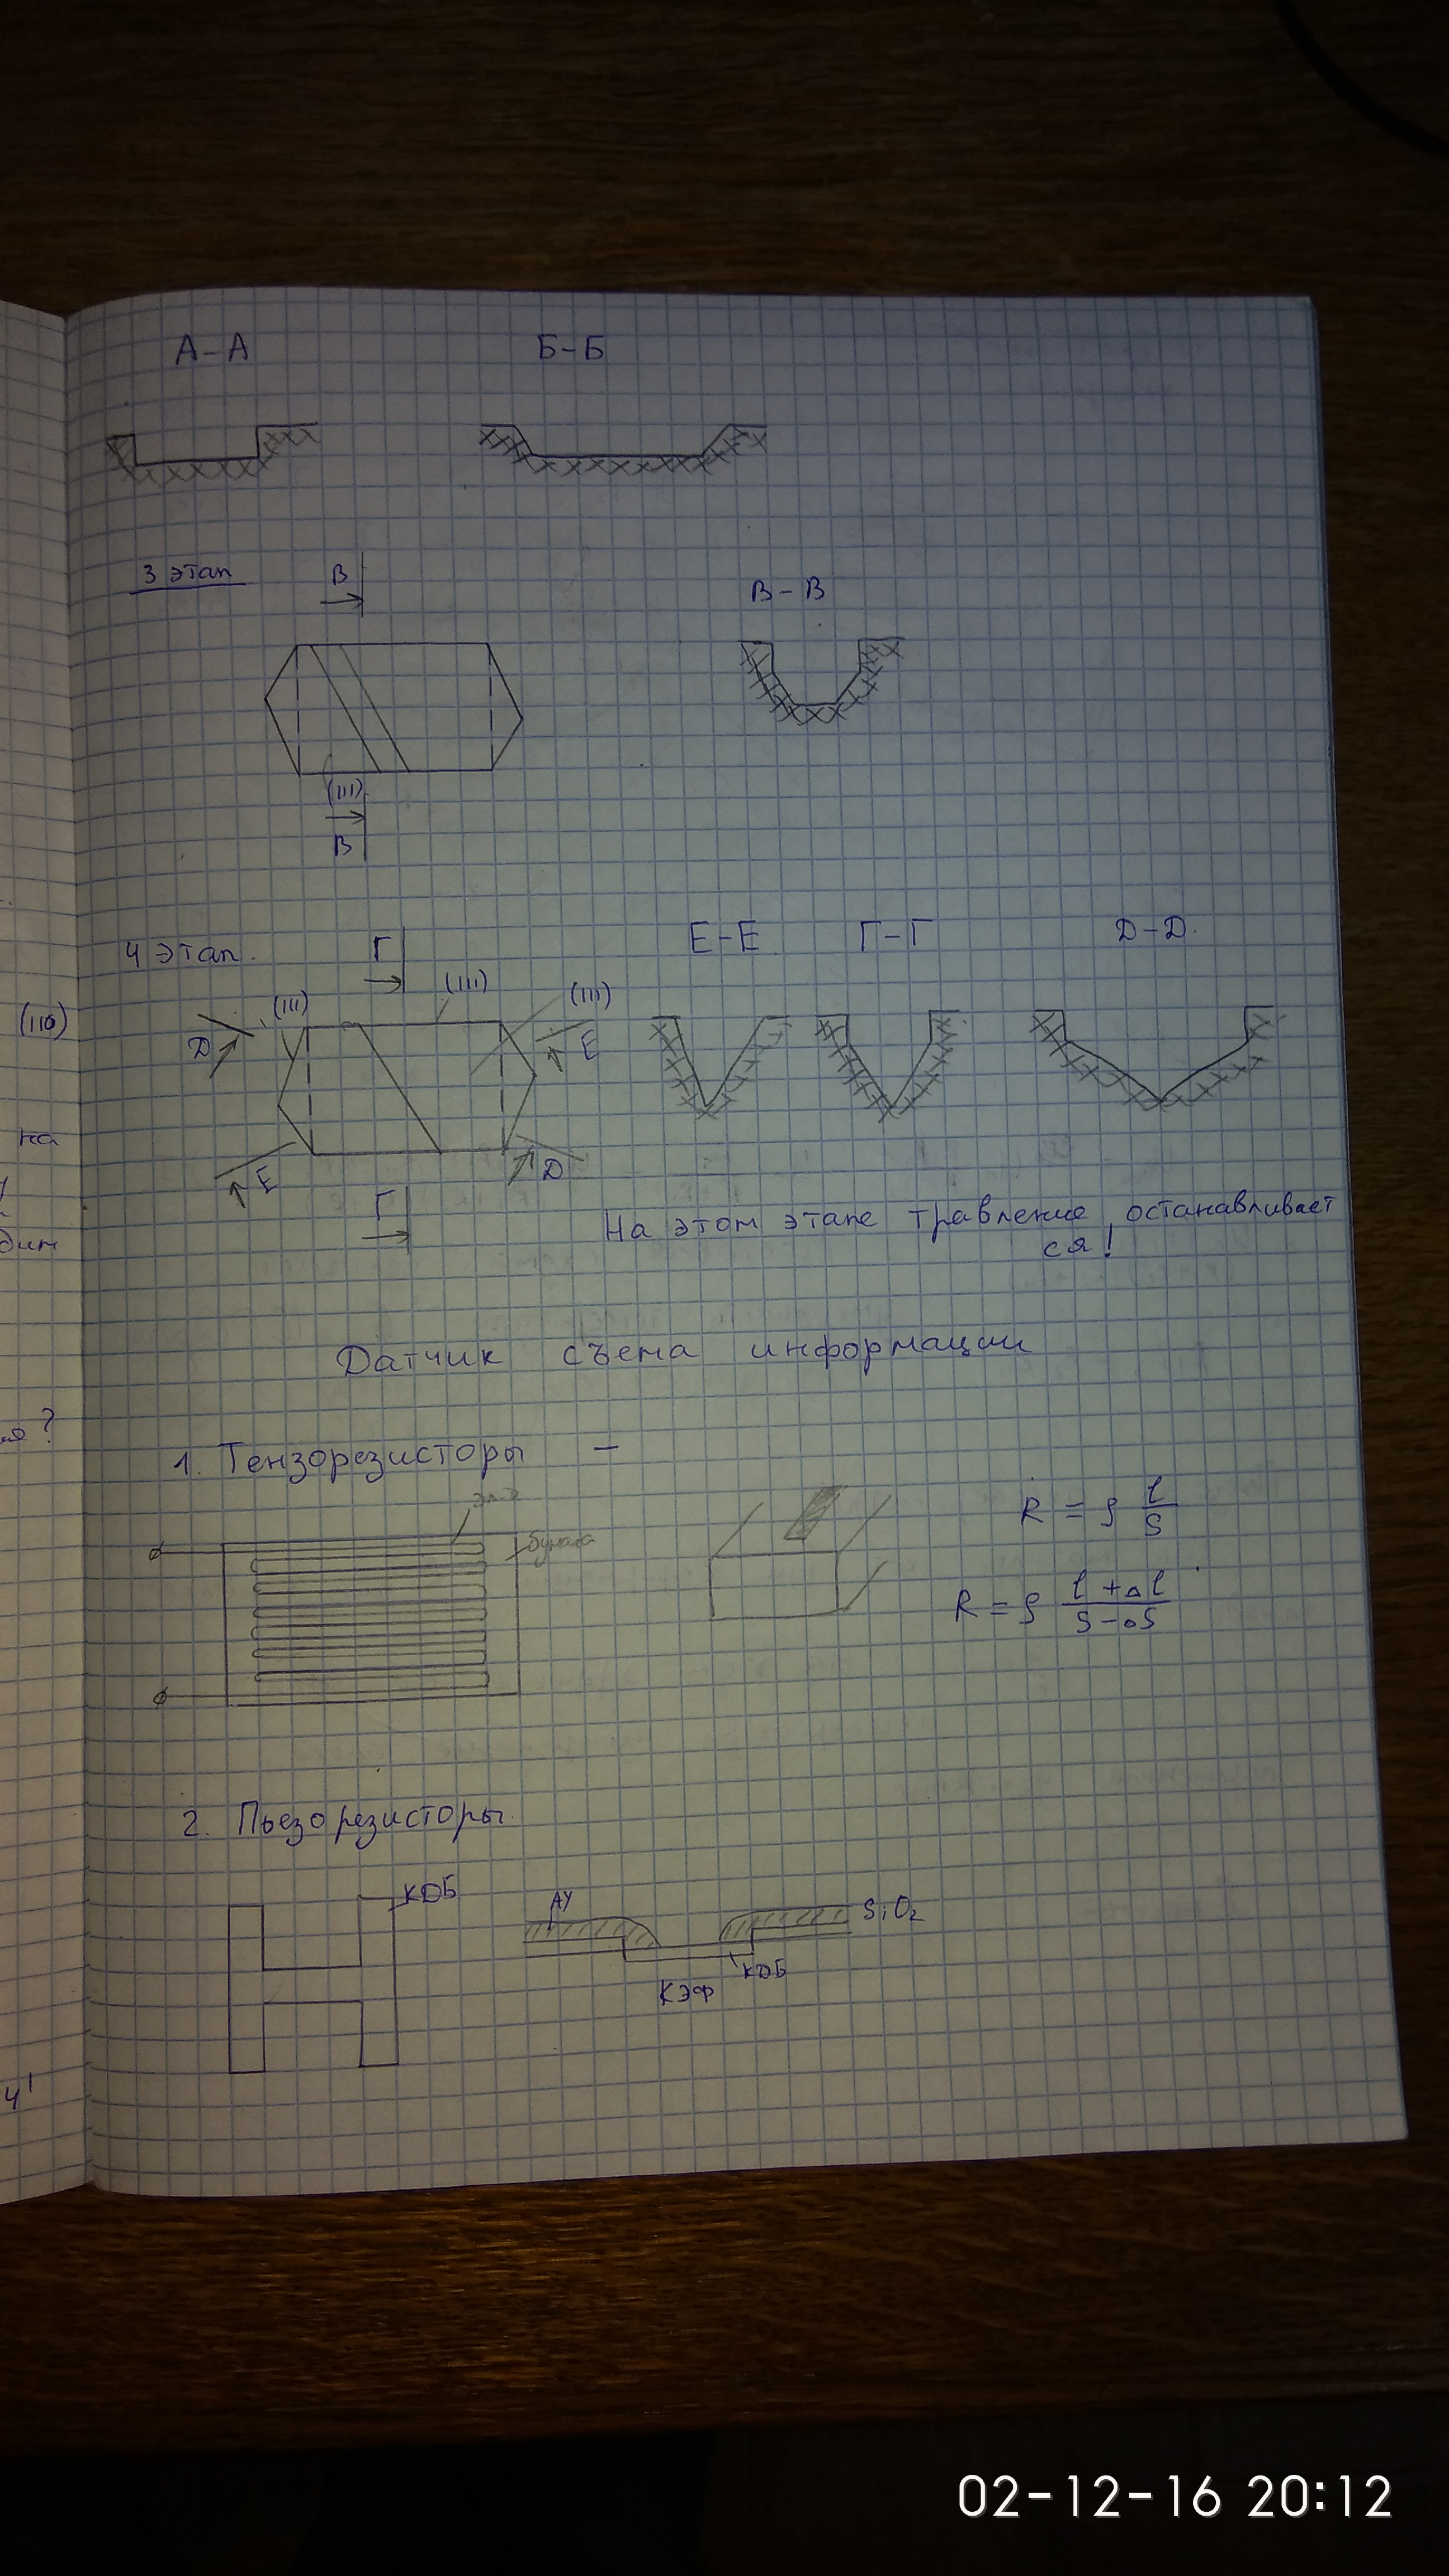 А-А
Б-Б
3 этап
В
В-В
(111)
В
4 этап.
Г
Е-Е
Г-Г
Д-Д.
(111)
(111)
(111)
(110)
D
E
на
E
D
Г
На этом этапе травление останавливает
ся!
Датчик съема информации
1. Тензорезисторы –
бумага
R = ρ l/S
R = ρ (l + Δl)/(S - ΔS)
2. Пьезорезисторы.
КДБ
SiO₂
КДБ
КЭФ
02-12-16 20:12